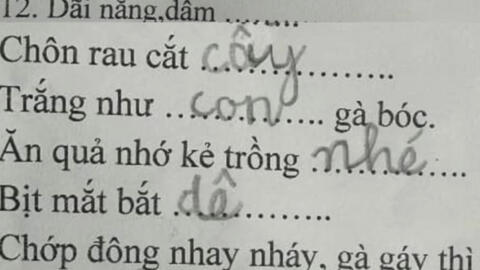 12. Dãi nắng,dầm ........
Chôn rau cắt cây
Trắng như ...con... gà bóc.
Ăn quả nhớ kẻ trồng nhé
Bịt mắt bắt dê
Chớp đông nhay nháy, gà gáy thì